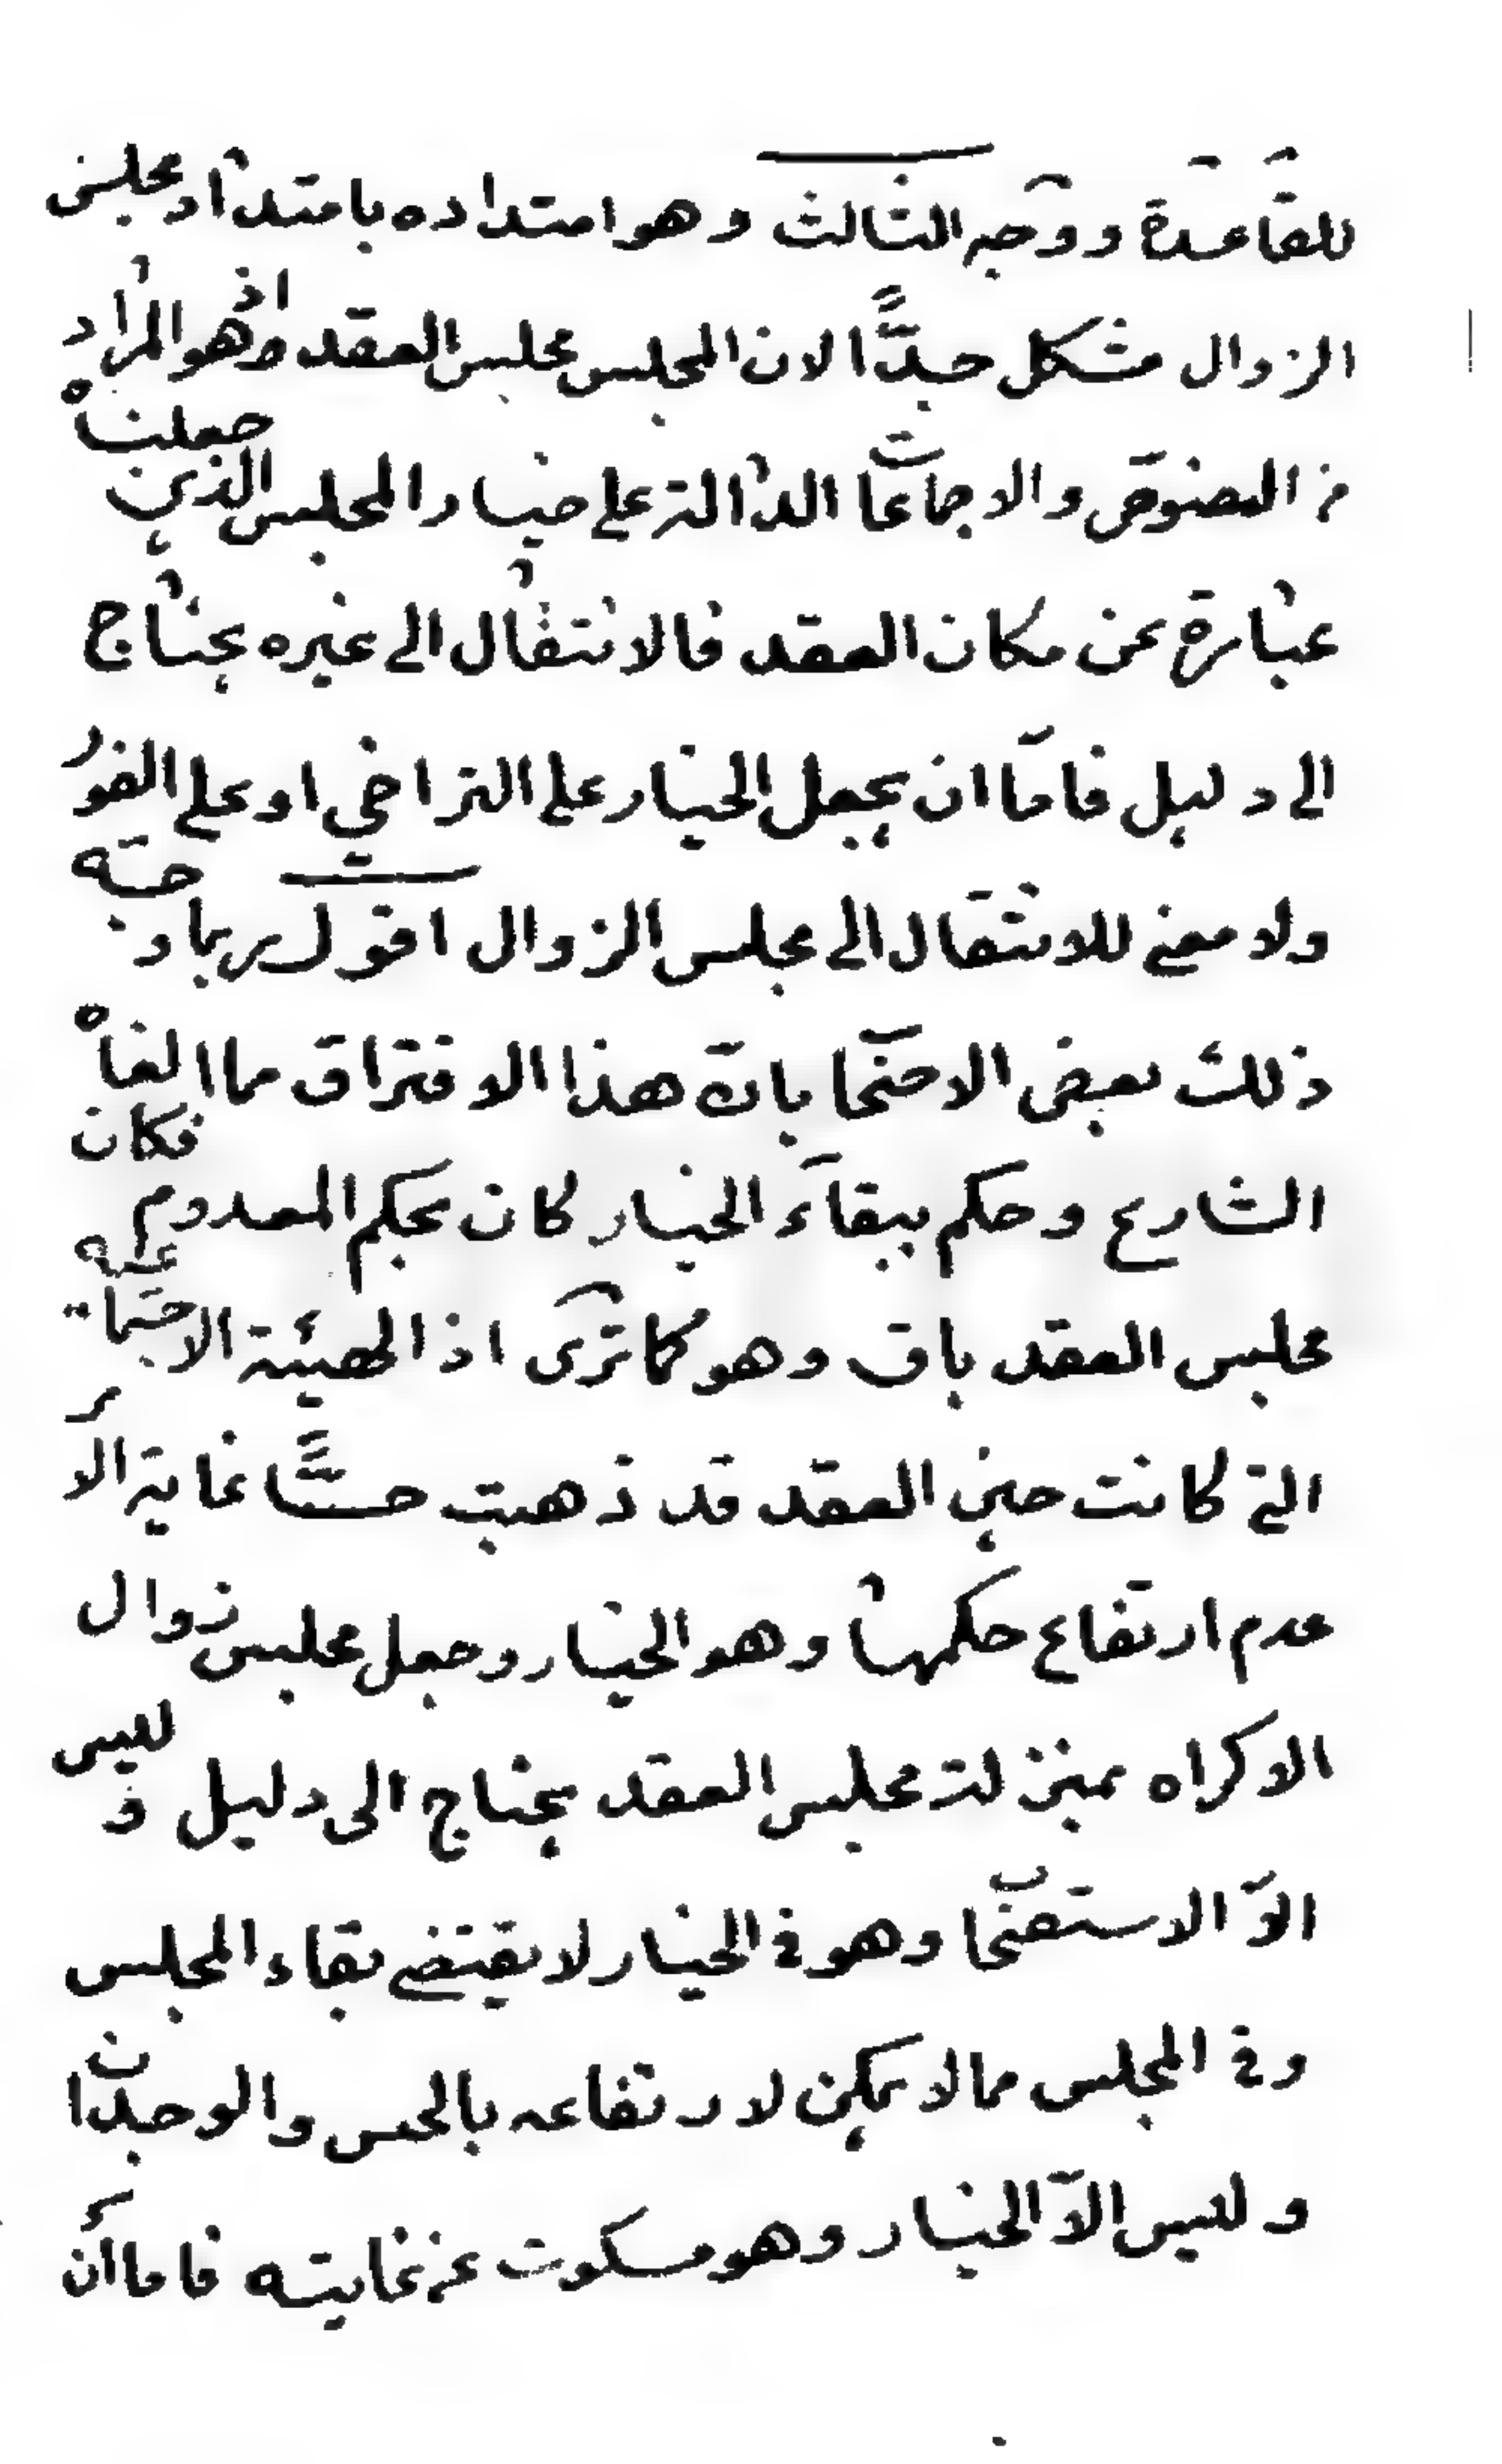 للقاعدة ووجه الثالث وهو امتداده بامتداد مجلس
الزوال مشكل جدًّا لان المجلس مجلس العقد اذ هو المراد
من النصوص والاجماعات الدالة على خيار المجلس الذين جعلناه
عبارة عن مكان العقد فالانتقال الى غيره يحتاج
الى دليل فامّا ان يجعل الخيار على التراخي او على الفور
ولا معنى للانتقال الى مجلس الزوال اقول ربما وجّه
ذلك بعض الاصحاب بان هذا الافتراق ما الغاه
الشارع وحكم ببقاء الخيار كان بحكم المعدوم فكان
مجلس العقد باق وهو كما ترى اذ الهيئة الاجتماعيّة
التي كانت حين العقد قد ذهبت حسًّا غاية الامر
عدم ارتفاع حكمها وهو الخيار وجعل مجلس زوال
الاكراه بمنزلة مجلس العقد يحتاج الى دليل و ليس
الّا الاستصحاب وهو في الخيار لا يقتضي بقاء المجلس
وفي المجلس مما لا يمكن لارتفاعه بالحس والوجدان
وليس الّا الخيار وهو مسكوت عن غايته فاما ان